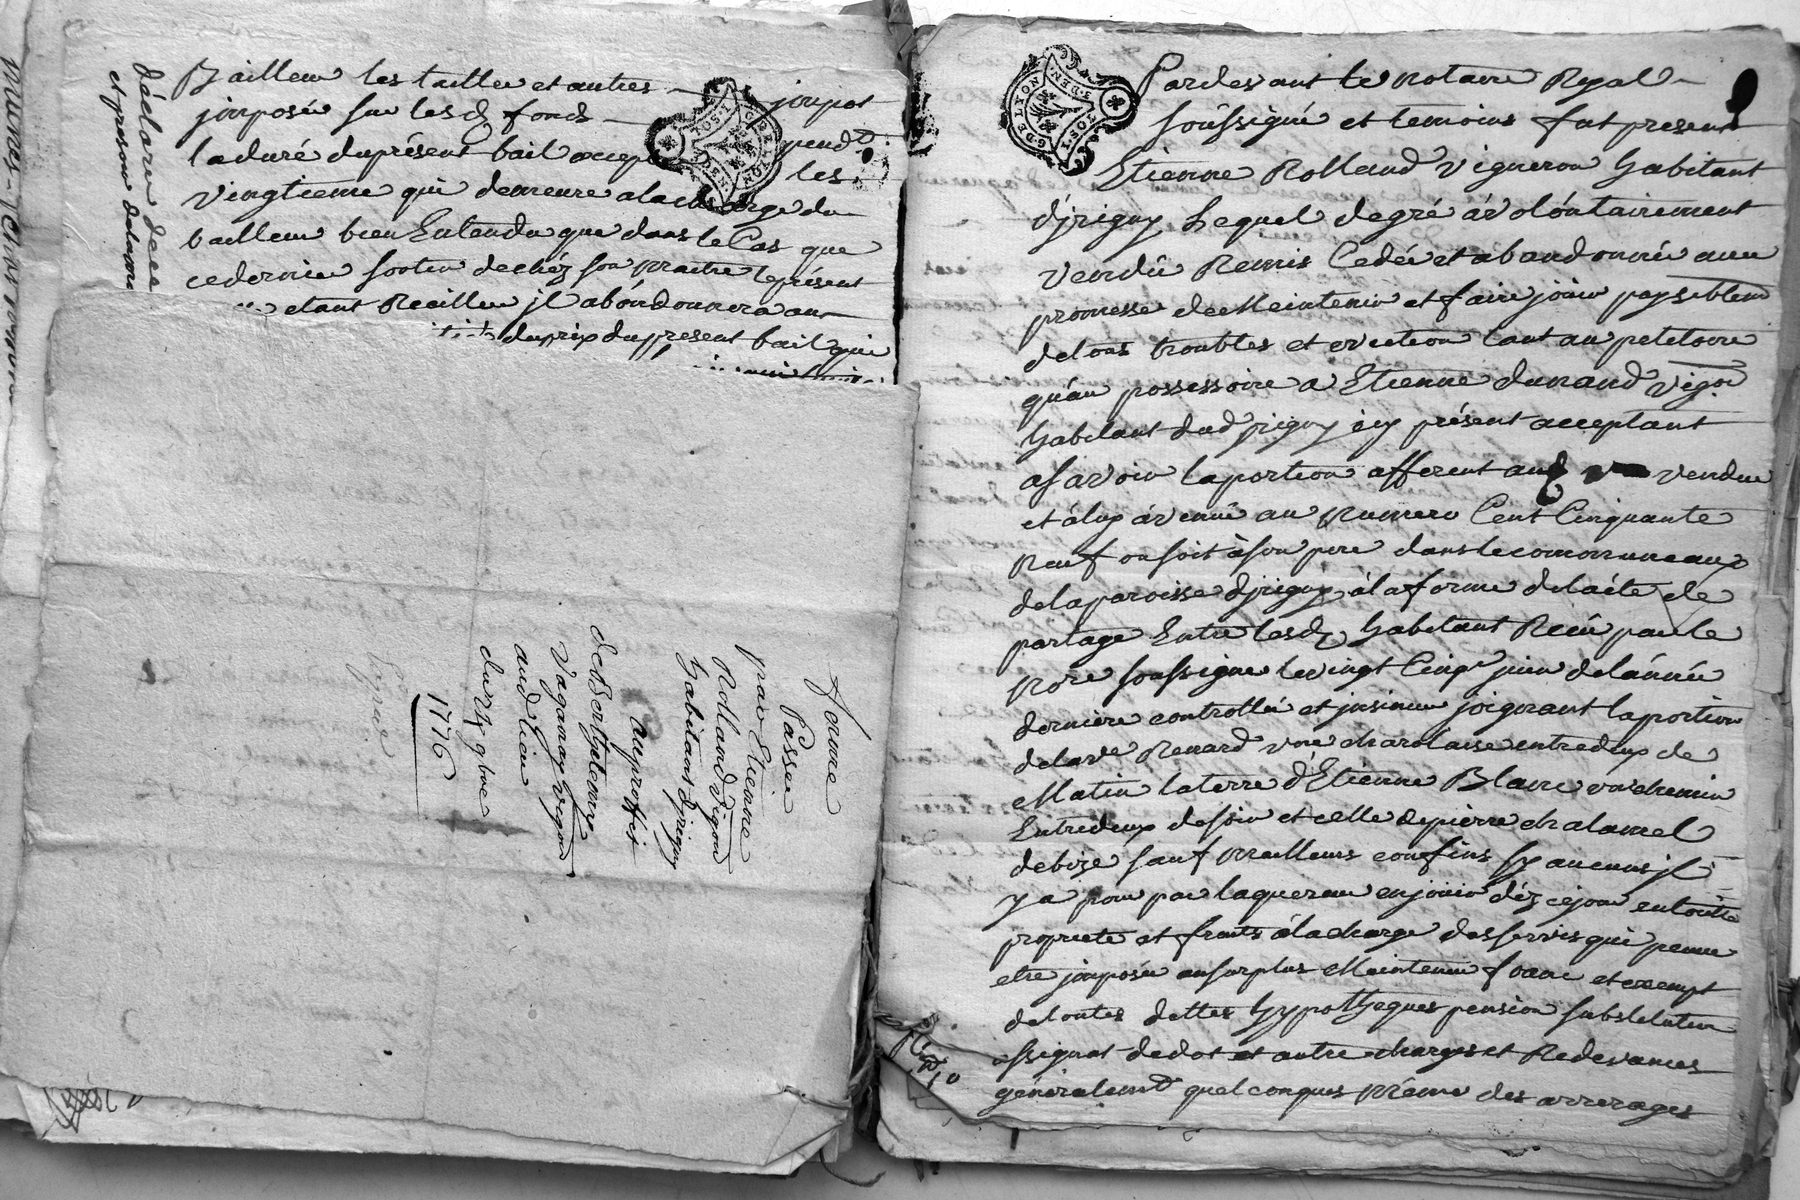 Bailleur les tailles et autres impot
imposée sur lesd fonds pendt
la duré du présent bail excep les
vingtieme qui demeure ala charge du
bailleur bien Entendu que dans le Cas que
ce dernier sortir de chéz son maitre le présent
etant Resillier jl abandonnera au
du prix du present bail qui
déclaré de ce
Ferme
Passée
par Etienne
Rolland Vigon
habitant djrigny
au proffit
de Bertgelemy
Vaganay vigon
aud lieu
du 27 9bre
1776
G. DE LYON
Pardevant le notaire Royal
soussigné et temoins fut present
Etienne Rolland Vigneron habitant
djrigny Lequel de gré à volontairement
vendû Remis Cedée et abandonnée avec
promesse de Maintenir et faire jouir paysiblem
de tous troubles et eviction tant au petitoire
qu'au possessoire a Etienne dunand vigon
habitant dud jrigny icy présent acceptant
asavoir la portion afferent aud vendeur
et à luy avenüe au Numero Cent Cinquante
Neuf ou soit à son pere dans le communeaux
de la paroisse djrigny à la forme de lacte de
partage Entre lesd habitant Reçu par le
Nore soussigné le vingt Cinq juin de lannée
derniere controllé et jnsinué joignant la portion
de la ve Renard voie charolaise entredeux de
Matin la terre d'Etienne Blanc voie chemin
Entredeux de soir et celle de pierre chalamel
de bize sauf meilleurs confins sy aucuns jl
y a pour par laquereur en jouir déz ce jour en toutte
proprieté et fruits à la charge des servis qui peuve
etre jmposée au surplus Maintenir franc et exempt
de toutes dettes hypotheques pension substitution
assignat de dot et autre charges et Redevances
généralemt quelconques Même des arrerages